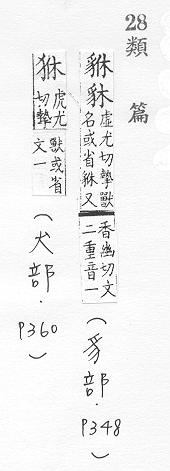 28類 篇
貅
虛尤切摯獸
名或省貅又
香幽切文
二重音一
(豸部.
P348)
虎尤
切摯
獸或省
文一
(犬部.
P360)